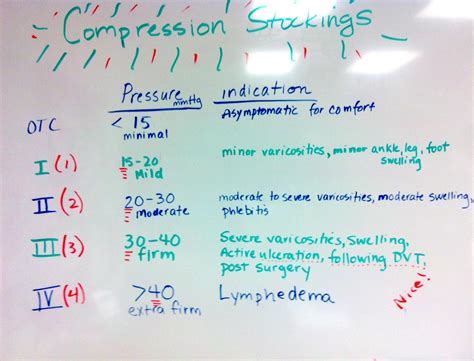 Compression Stockings
Pressure mmHg indication
OTC < 15 minimal Asymptomatic for comfort
I (1) 15-20 Mild minor varicosities, minor ankle, leg, foot swelling
II (2) 20-30 moderate moderate to severe varicosities, moderate swelling, phlebitis
III (3) 30-40 firm Severe varicosities, Swelling, Active ulceration, following DVT, post surgery
IV (4) >40 extra firm Lymphedema
Nice!